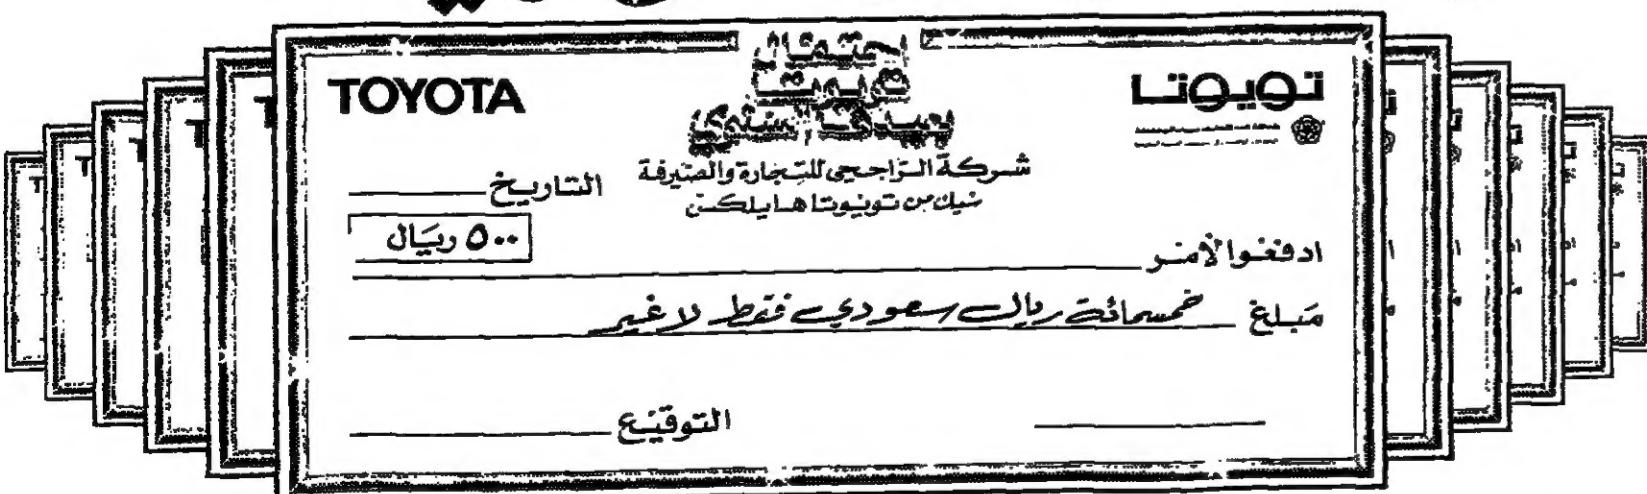 TOYOTA
تويوتا
احتفال
تويوتا
شركة الراجحي للتجارة والصيرفة
شيك من تويوتا هايلكس
التاريخ
٥٠٠ ريال
ادفعوا لأمر
مبلغ خمسمائة ريال سعودي فقط لا غير
التوقيع